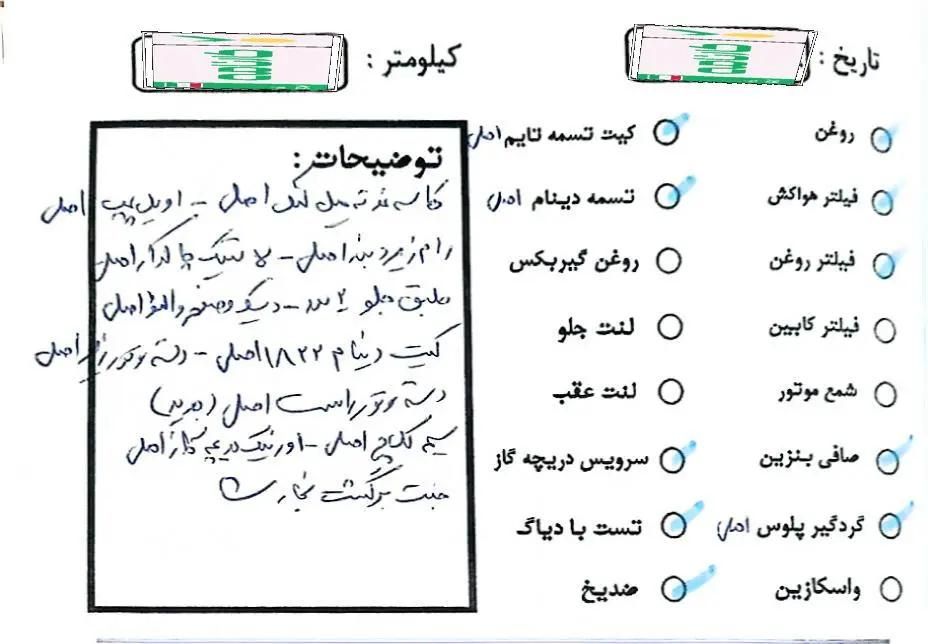 تاریخ :
کیلومتر :
روغن
فیلتر هواکش
فیلتر روغن
فیلتر کابین
شمع موتور
صافی بنزین
گردگیر پلوس اصلی
واسکازین
کیت تسمه تایم اصلی
تسمه دینام اصلی
روغن گیربکس
لنت جلو
لنت عقب
سرویس دریچه گاز
تست با دیاگ
ضدیخ
توضیحات :
کاسه نمد ته میل لنگ اصلی - اویل پمپ اصلی
رام زیر اصلی - لاستیک چاکدار اصلی
طبق جلو ۲ عدد - دیسک و صفحه والئو اصلی
کیت دینام ۱۸۲۲ اصلی - دسته موتور اصلی
دسته موتور راست اصلی (جدید)
سیم کلاچ اصلی - اورینگ دریچه گاز اصلی
برگشت بخار